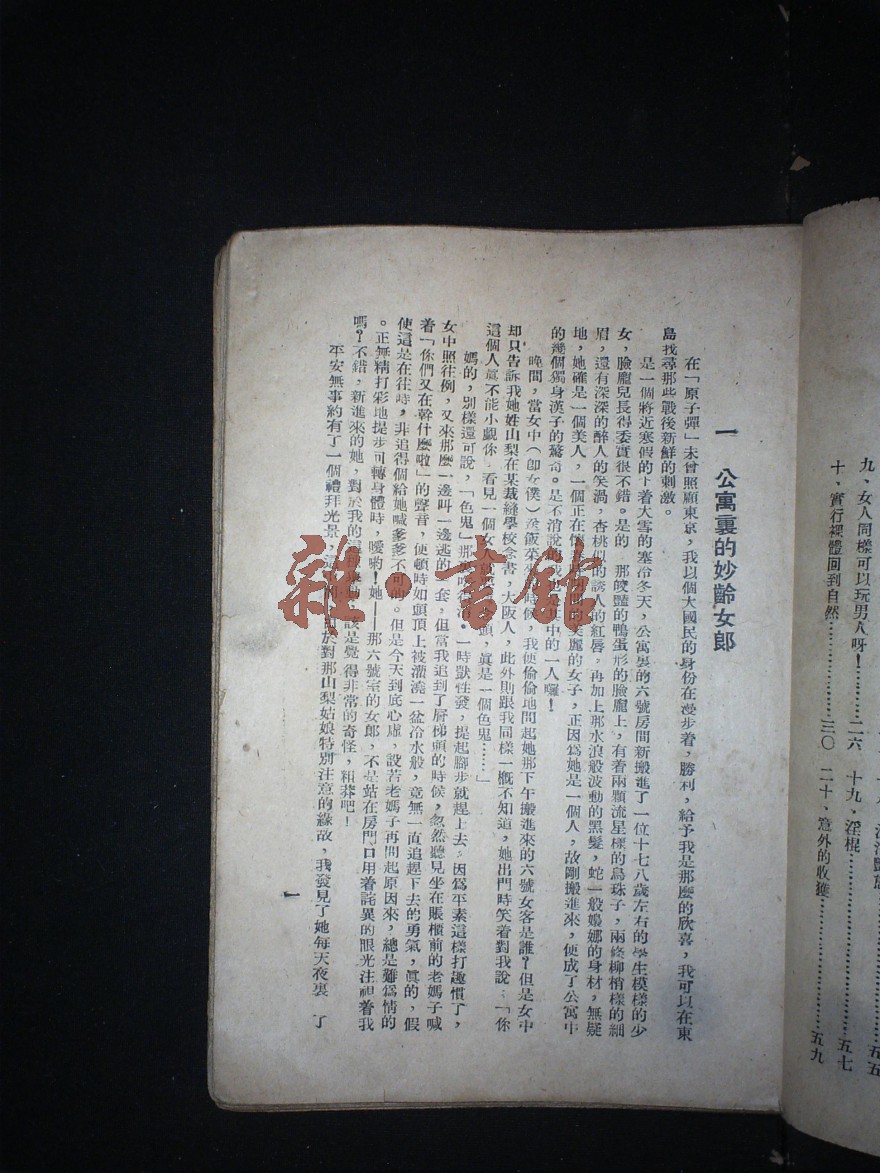 九、女人同樣可以玩男人呀!………二六　十九、淫棍………………………五七
十、實行裸體回到自然…………………三〇　二十、意外的收獲………………………五九
一　公寓裏的妙齡女郎
在「原子彈」未曾照顧東京，我以個大國民的身份在漫步着，勝利，給予我是那麼的欣喜，我可以在東
島找尋那些戰後新鮮的刺激。
是一個將近寒假的下着大雪的塞冷冬天，公寓裏的六號房間新搬進了一位十七八歲左右的學生模樣的少
女，臉龐兒長得委實很不錯。是的　那皎豔的鴨蛋形的臉龐上，有着兩顆流星樣的烏珠子，兩條柳梢樣的細
眉，還有深深的醉人的笑渦，杏桃似的誘人的紅唇，再加上那水浪般波動的黑髮，蛇一般嬝娜的身材，無疑
地，她確是一個美人，一個正在懷春美麗的女子，正因爲她是一個人，故剛搬進來，便成了公寓中
的幾個獨身漢子的驚奇。是不消說的我也是其中的一人囉！
晚間，當女中（卽女僕）送飯菜來的時候，我便偷偷地問起她那下午搬進來的六號女客是誰？但是女中
却只告訴我她姓山梨在某裁縫學校念書，大阪人，此外則跟我同樣一概不知道，她出門時笑着對我說：「你
這個人眞不能小覷你　看見一個女人就頭，眞是一個色鬼……」
媽的，別樣還可說，「色鬼」那一時獸性發，提起腳步就趕上去。因爲平素這樣打趣慣了，
女中照往例，又來那麼一邊叫一邊逃的一套，但當我追到了扶梯頭的時候，忽然聽見坐在賬櫃前的老媽子喊
着「你們又在幹什麼啦」的聲音，便頓時如頭頂上被灌澆一盆冷水般，竟無一直追趕下去的勇氣，眞的，假
使這是在往時，非追得個給她喊爹爹不可的。但是今天到底心虛，設若老媽子再問起原因來，總是難爲情的
。正無精打彩地提步回轉身體時，噯喲！她——那六號室的女郎，不是站在房門口用着詫異的眼光注視着我
嗎？不錯，新進來的她，對於我的這種舉動，該是覺得非常的奇怪，粗莽吧！
平安無事約有了一個禮拜光景，這於對那山梨姑娘特別注意的緣故，我發見了她每天夜裏　了
一
雜·書館